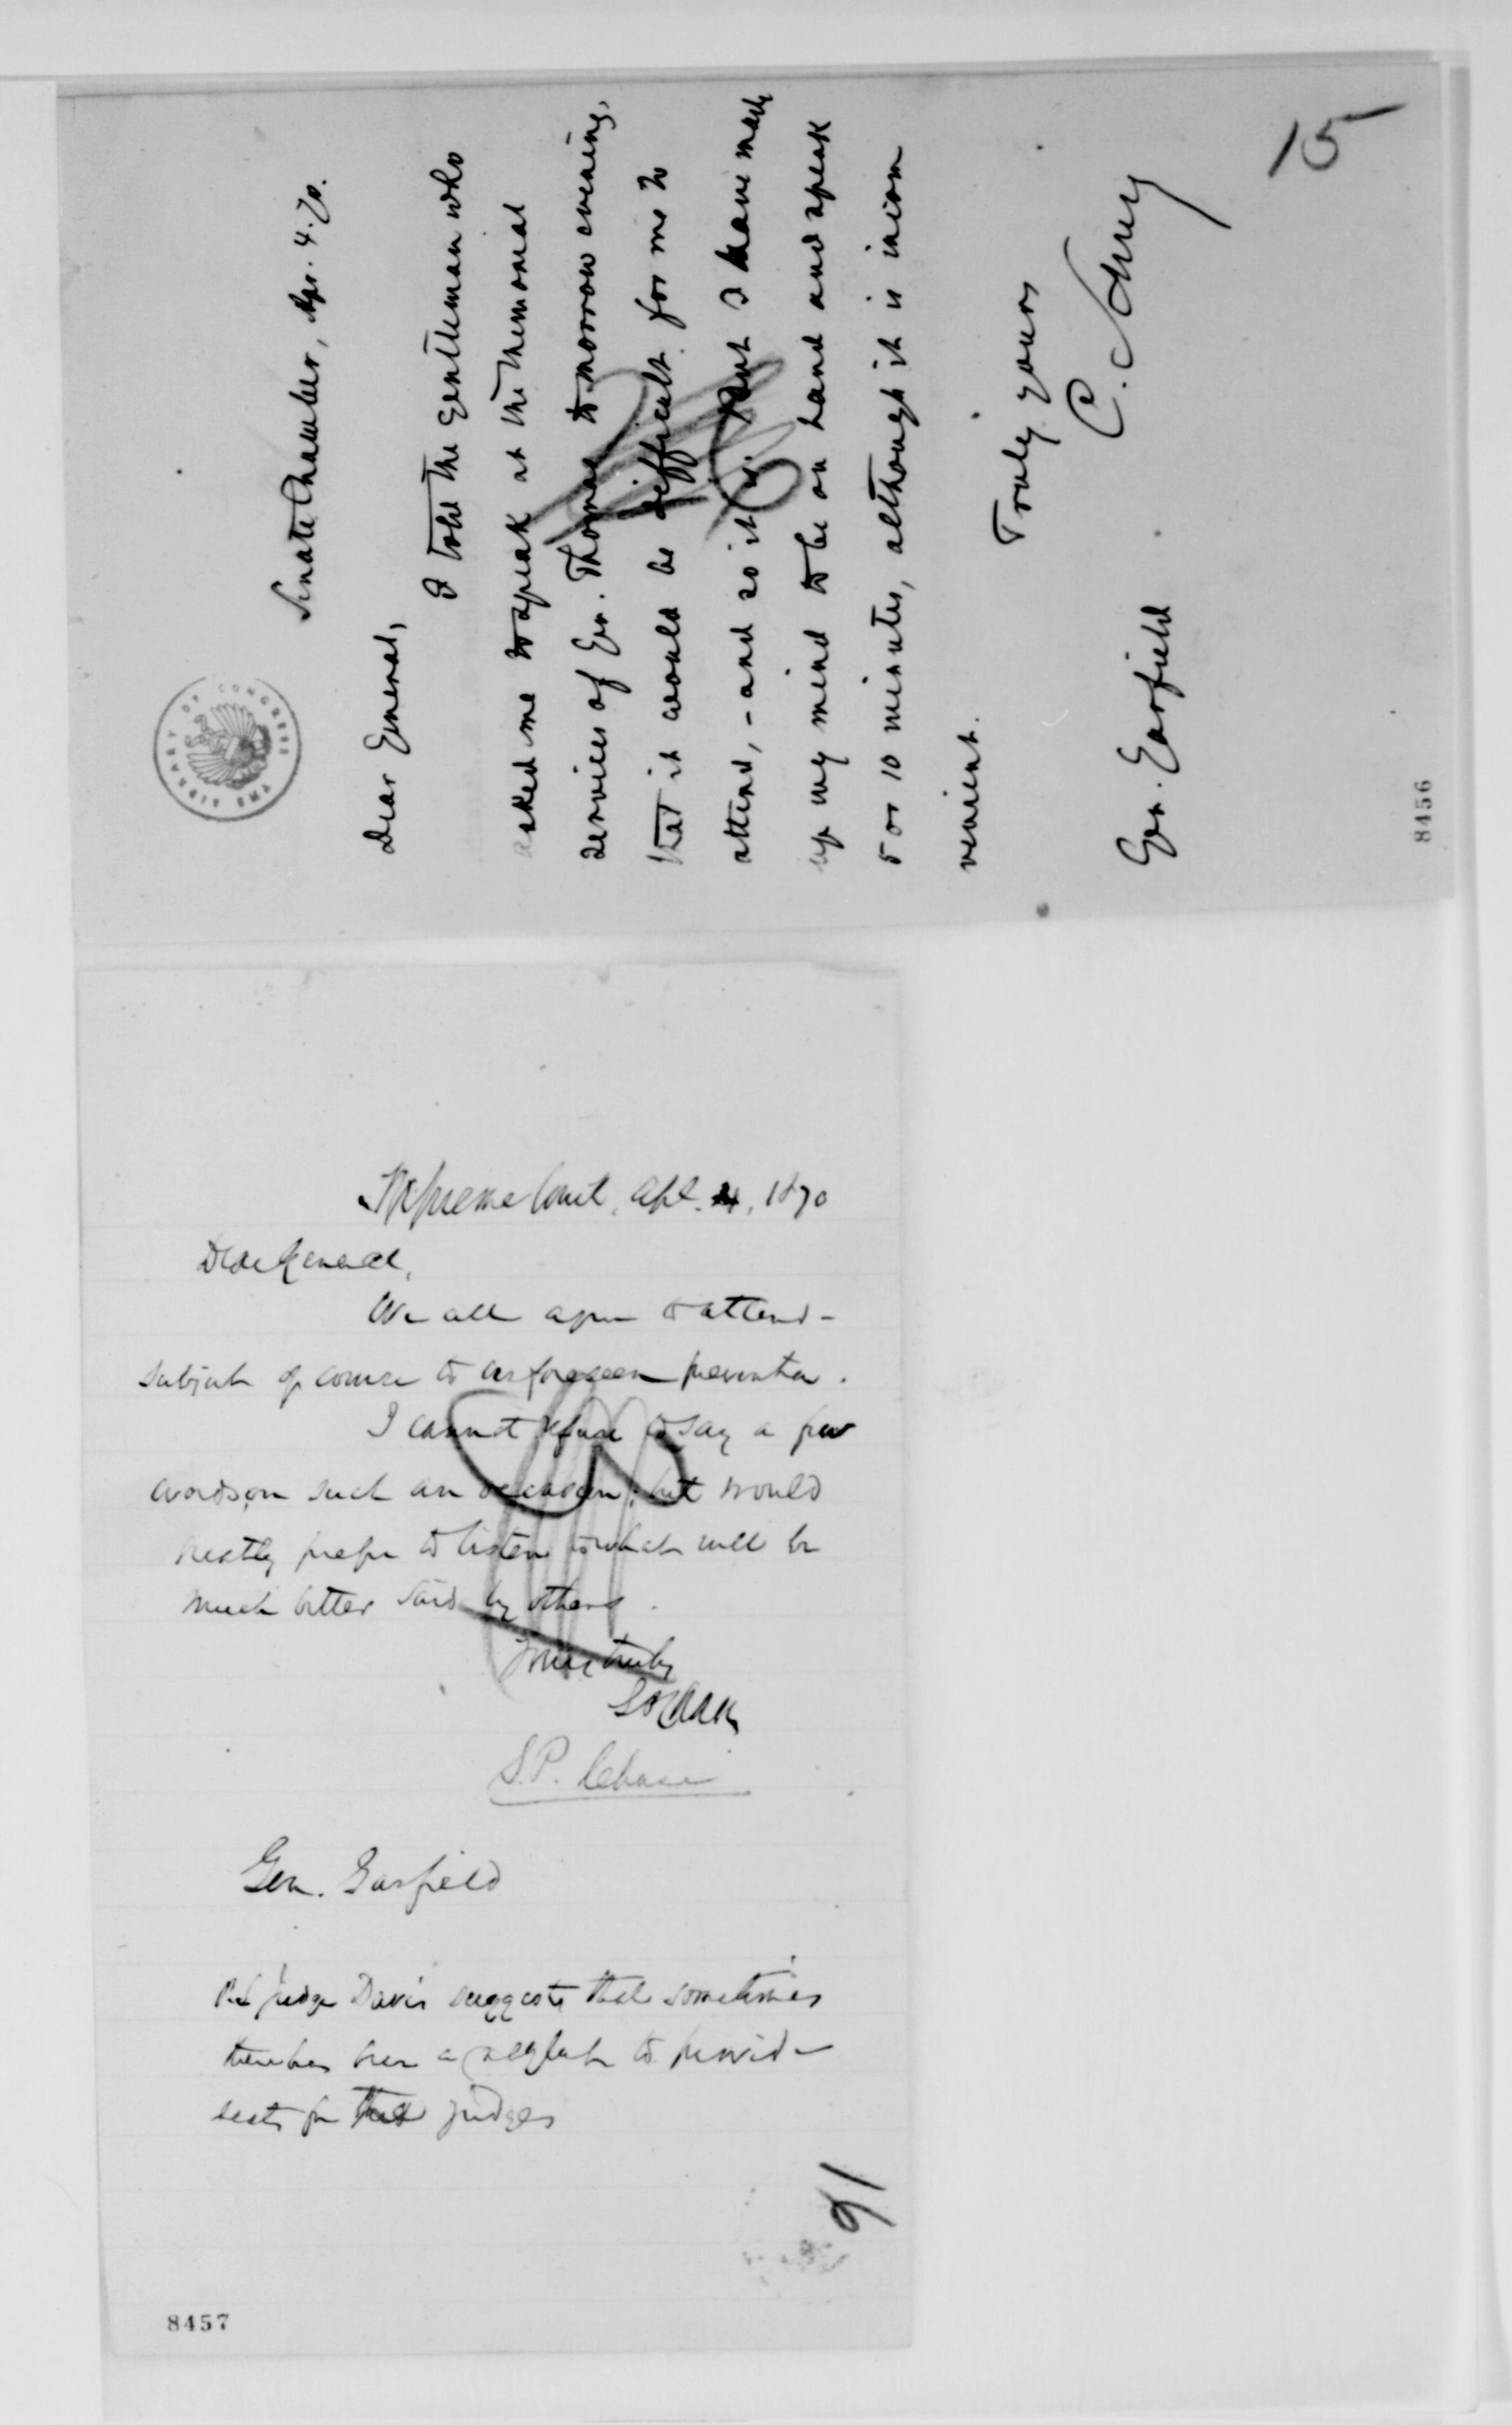 15
THE LIBRARY OF CONGRESS
Senate Chamber, Apr. 4. 70.
Dear General,
I told the gentleman who
asked me to speak at the memorial
services of Gen. Thomas to-morrow evening,
that it would be difficult for me to
attend, – and so it is. But I have made
up my mind to be on hand and speak
5 or 10 minutes, although it is incon
venient.
Truly yours
C. Schurz
Gen. Garfield
8456
Supreme Court, Apl. 4, 1870
Dear General,
We all agree to attend –
subject of course to unforeseen prevention.
I cannot refuse to say a few
words on such an occasion; but would
greatly prefer to listen to what will be
much better said by others.
Yours truly
S P Chase
S. P. Chase
Gen. Garfield
P.S. Judge Davis suggests that sometimes
there has been a neglect to provide
seats for the judges
16
8457